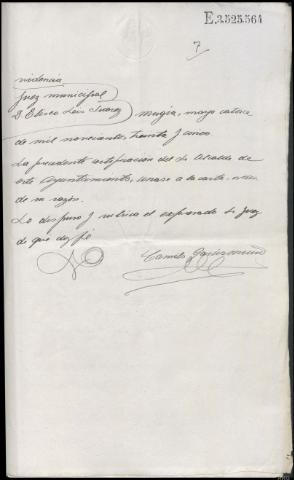 E.3525,564
7
Providencia
Juez municipal
D. Eliseo Leis Juarez Mugia, mayo catorce
de mil novecientos treinta y cinco
La precedente certificación del Sr Alcalde de
este Ayuntamiento, unase a la carta-orden
de su razón.
Lo dispuso y rubrica el expresado Sr Juez
de que doy fe
Camilo